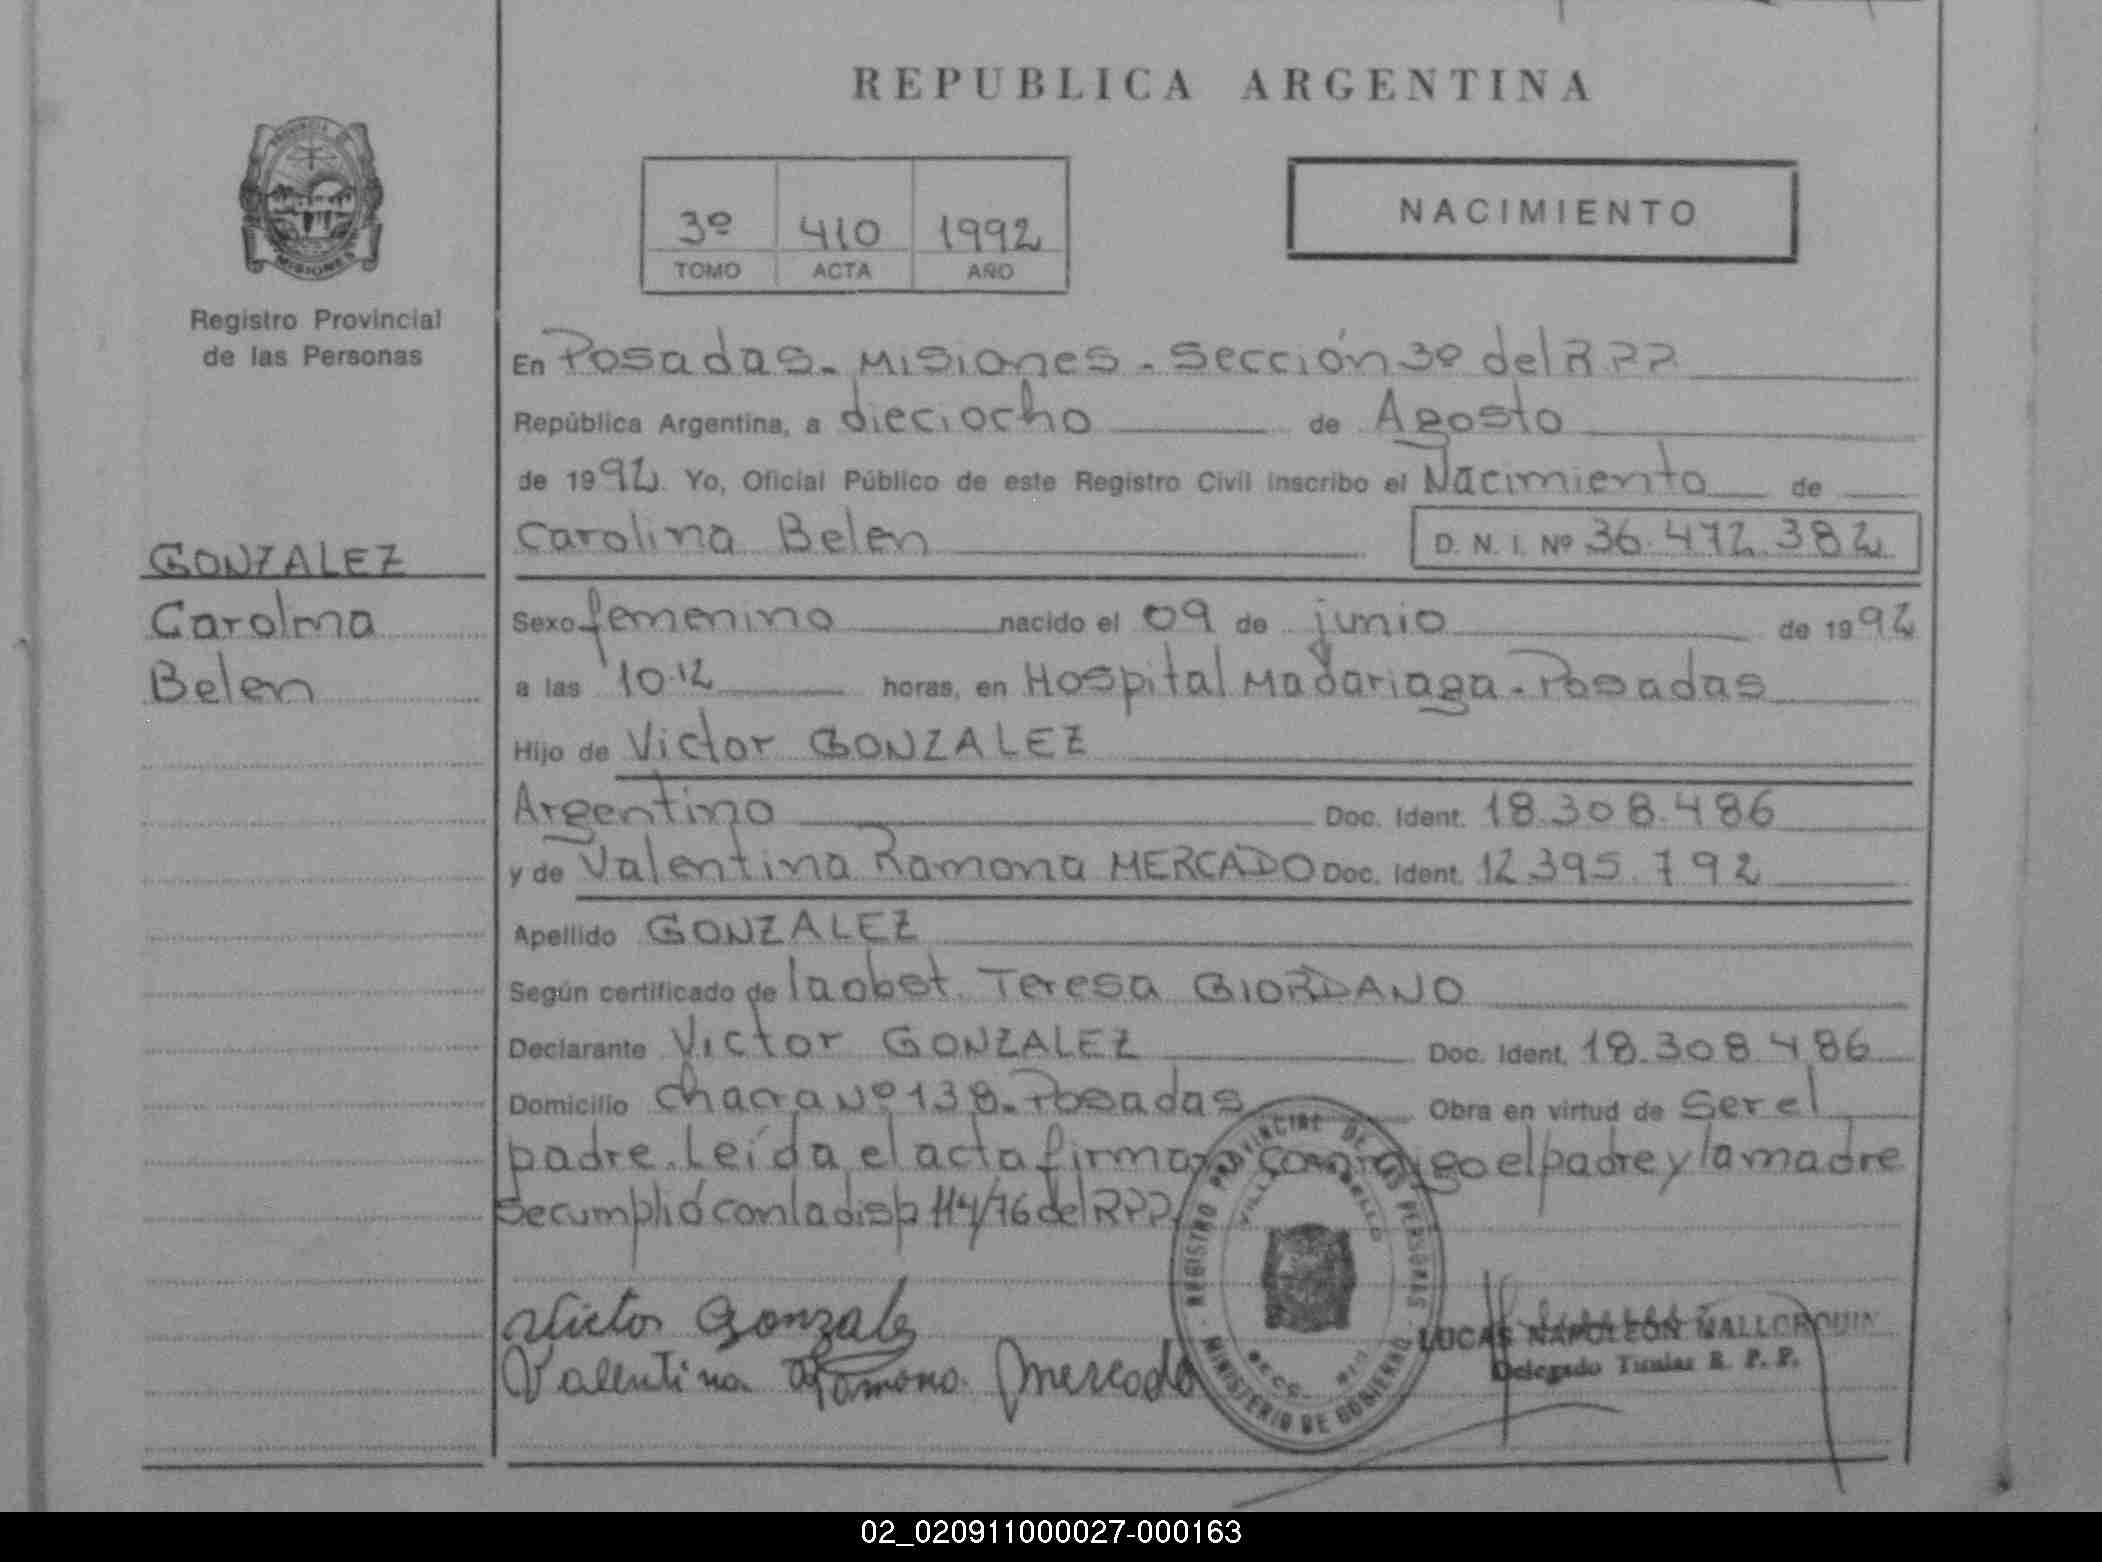 REPUBLICA ARGENTINA
PROVINCIA DE
MISIONES
Registro Provincial
de las Personas
3º 410 1992
TOMO ACTA AÑO
NACIMIENTO
En Posadas. Misiones. Sección 3º del RPP
República Argentina, a dieciocho de Agosto
de 1992. Yo, Oficial Público de este Registro Civil inscribo el Nacimiento de
GONZALEZ
Carolina
Belen
Carolina Belen D. N. I. Nº 36.472.382
Sexo femenino nacido el 09 de junio de 1992
a las 10.12 horas, en Hospital Madariaga. Posadas
Hijo de Victor GONZALEZ
Argentino Doc. Ident. 18.308.486
y de Valentina Ramona MERCADO Doc. Ident. 12.395.792
Apellido GONZALEZ
Según certificado de la obst. Teresa GIORDANO
Declarante Victor GONZALEZ Doc. Ident. 18.308.486
Domicilio Chacra Nº 138. Posadas Obra en virtud de Ser el
padre. Leída el acta firman conmigo el padre y la madre
Se cumplió con la disp 114/76 del RPP.
REGISTRO PROVINCIAL DE LAS PERSONAS
MINISTERIO DE GOBIERNO
Victor Gonzalez
Valentina Ramona Mercado
LUCAS NAPOLEON MALLORQUIN
Delegado Titular R. P. P.
02_020911000027-000163